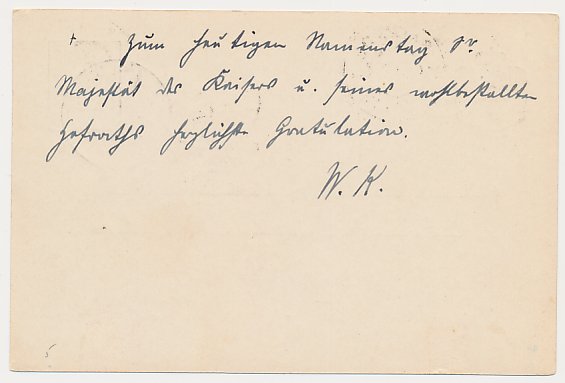 + Zum heutigen Namenstag Sr.
Majestät des Kaisers u. seines wohlbestallten
Hofraths herzlichste Gratulation.
W. K.
5